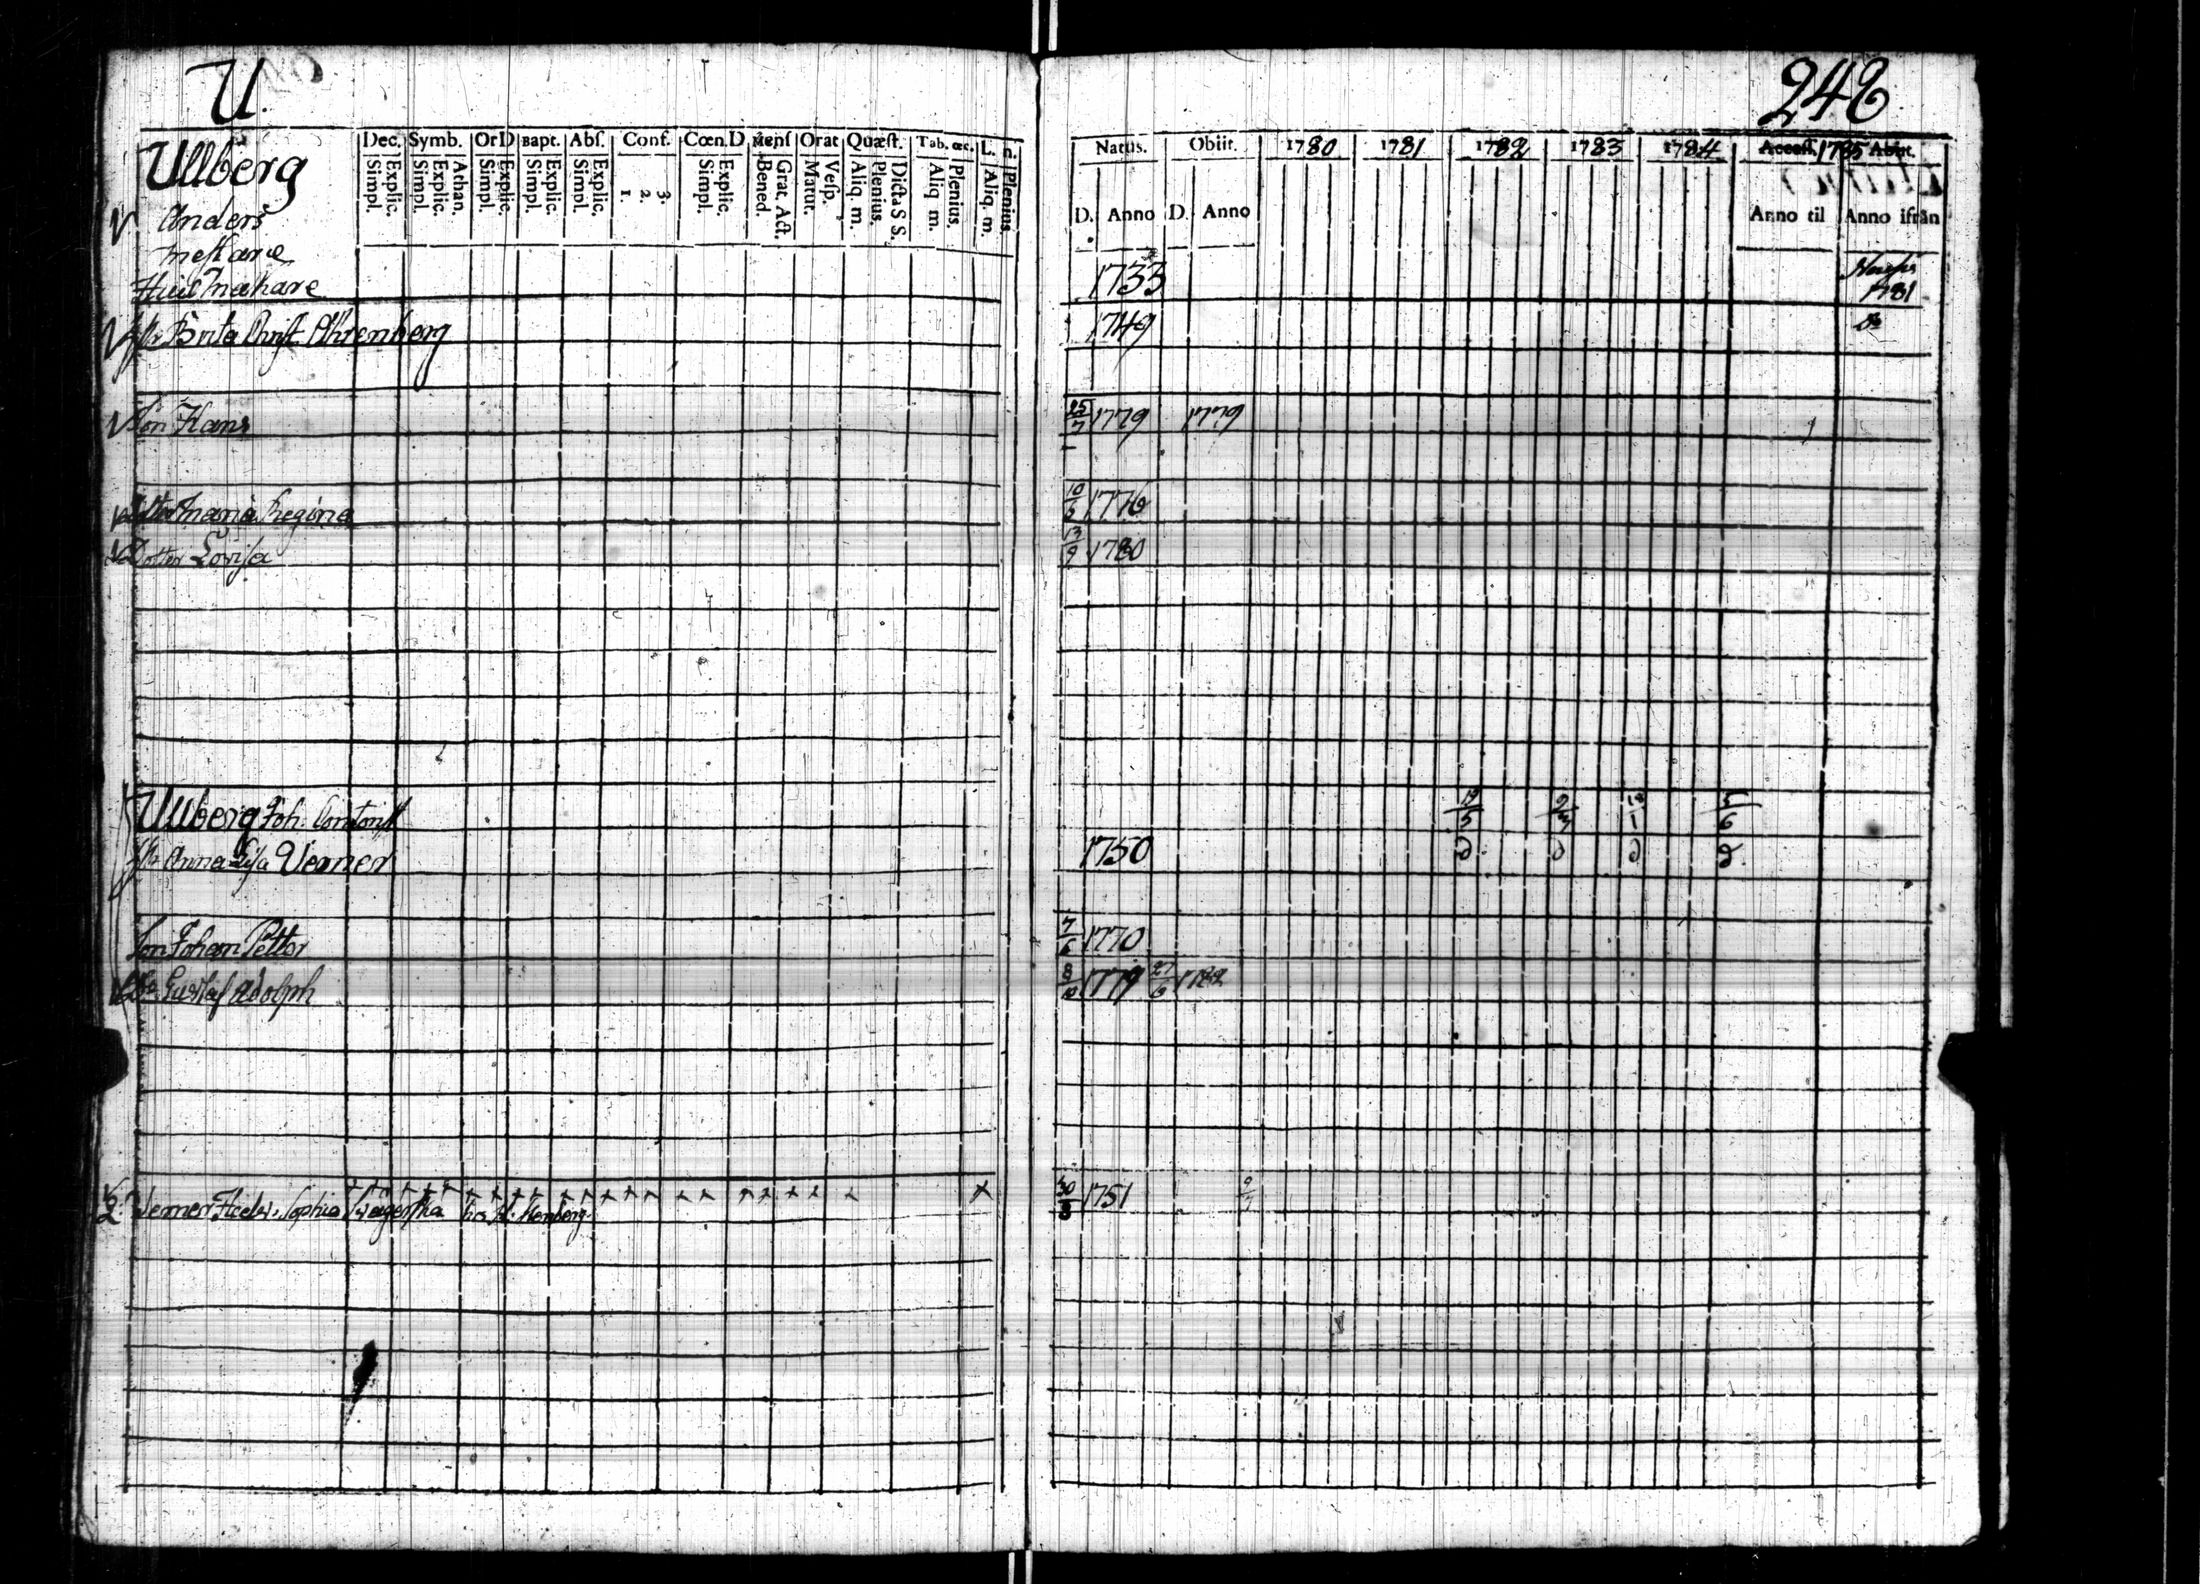 U.
248
Dec. Symb. Or D Bapt. Abſ. Conf. Cœn. D Menſ Orat Quæſt. Tab. œc. L. c.
Simpl. Explic. Simpl. Explic. Athan. Simpl. Explic. Simpl. Explic. Simpl. Explic. 1. 2. 3. Simpl. Explic. Bened. Grat. Act. Matut. Veſp. Aliq. m. Plenius. Dicta S S. Aliq m. Plenius. Aliq. m. Plenius.
Natus. Obiit. 1780 1781 1782 1783 1784 Acceſſ. 1785 Abiit.
D. Anno D. Anno Anno til Anno ifrån
Ullberg
Anders
Mestare
Huusmakare 1733 1781
Br Brita Christ. Ahrenberg 1749 do
Son Hans 25/7 1779 1779
Dotter Maria Regina 1776
Dotter Lovisa 13/9 1780
Ullberg Joh. 19/5 5/6
Anna Lisa Verner 1750 d. d d d.
Son Johan Petter 7/6 1770
Gustaf Adolph 8/10 1779 27/6 1782
Verner Hedv. Sophia 1751